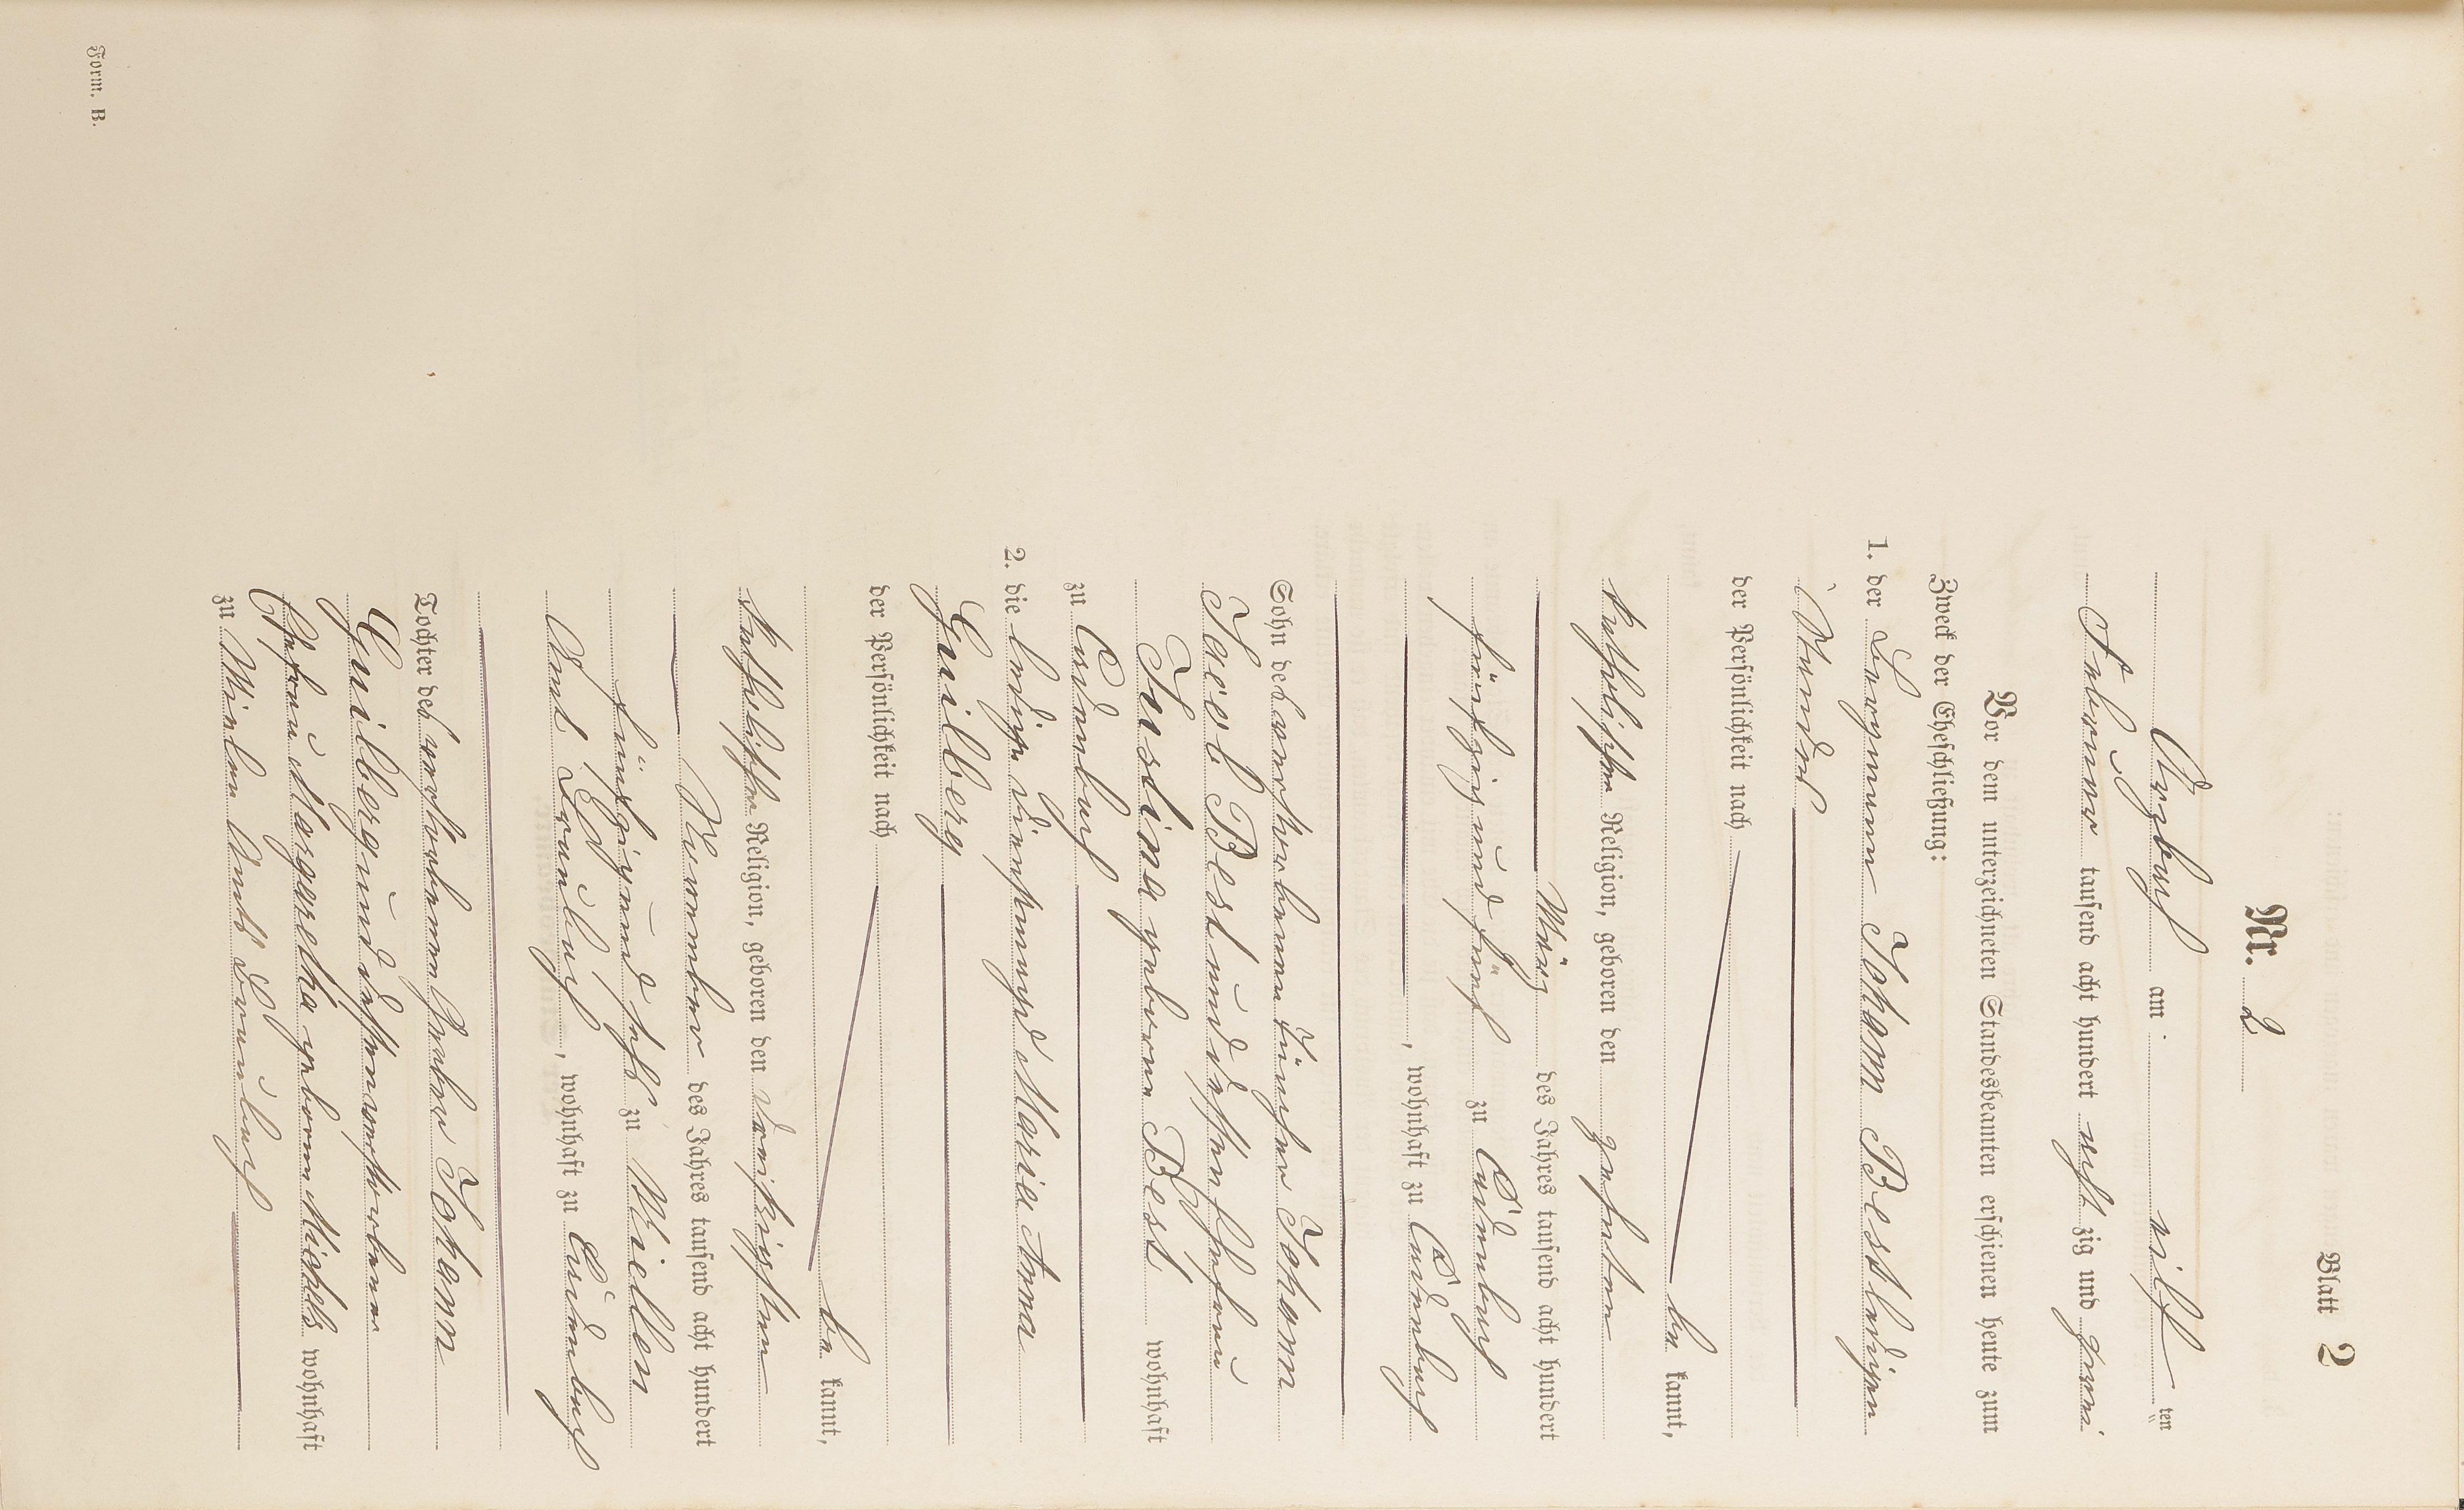 Blatt 2
Nr. 2
Arzbach am elf ten
Februar tausend acht hundert acht zig und zwei
Vor dem unterzeichneten Standesbeamten erschienen heute zum
Zweck der Eheschließung:
1. der Bergmann Johann Best ledigen
Standes
der Persönlichkeit nach
be kannt,
katholischer Religion, geboren den zehnten
März des Jahres tausend acht hundert
fünfzig und fünf zu Cadenbach
, wohnhaft zu Cadenbach
Sohn des verstorbenen Tüncher Johann
Jacob Best und dessen Ehefrau
Justina geborne Best wohnhaft
zu Cadenbach
2. die ledige Dienstmagd Maria Anna
Guilberg
der Persönlichkeit nach
be kannt,
katholischer Religion, geboren den dreißigsten
November des Jahres tausend acht hundert
fünfzig und sechs zu Miellen
Amt Braubach, wohnhaft zu Cadenbach
Tochter des verstorbenen Johann
Guilberg und dessen verstorbener
Ehefrau Margaretha geborene Michels wohnhaft
zu Mielen Amts Braubach
Form. B.